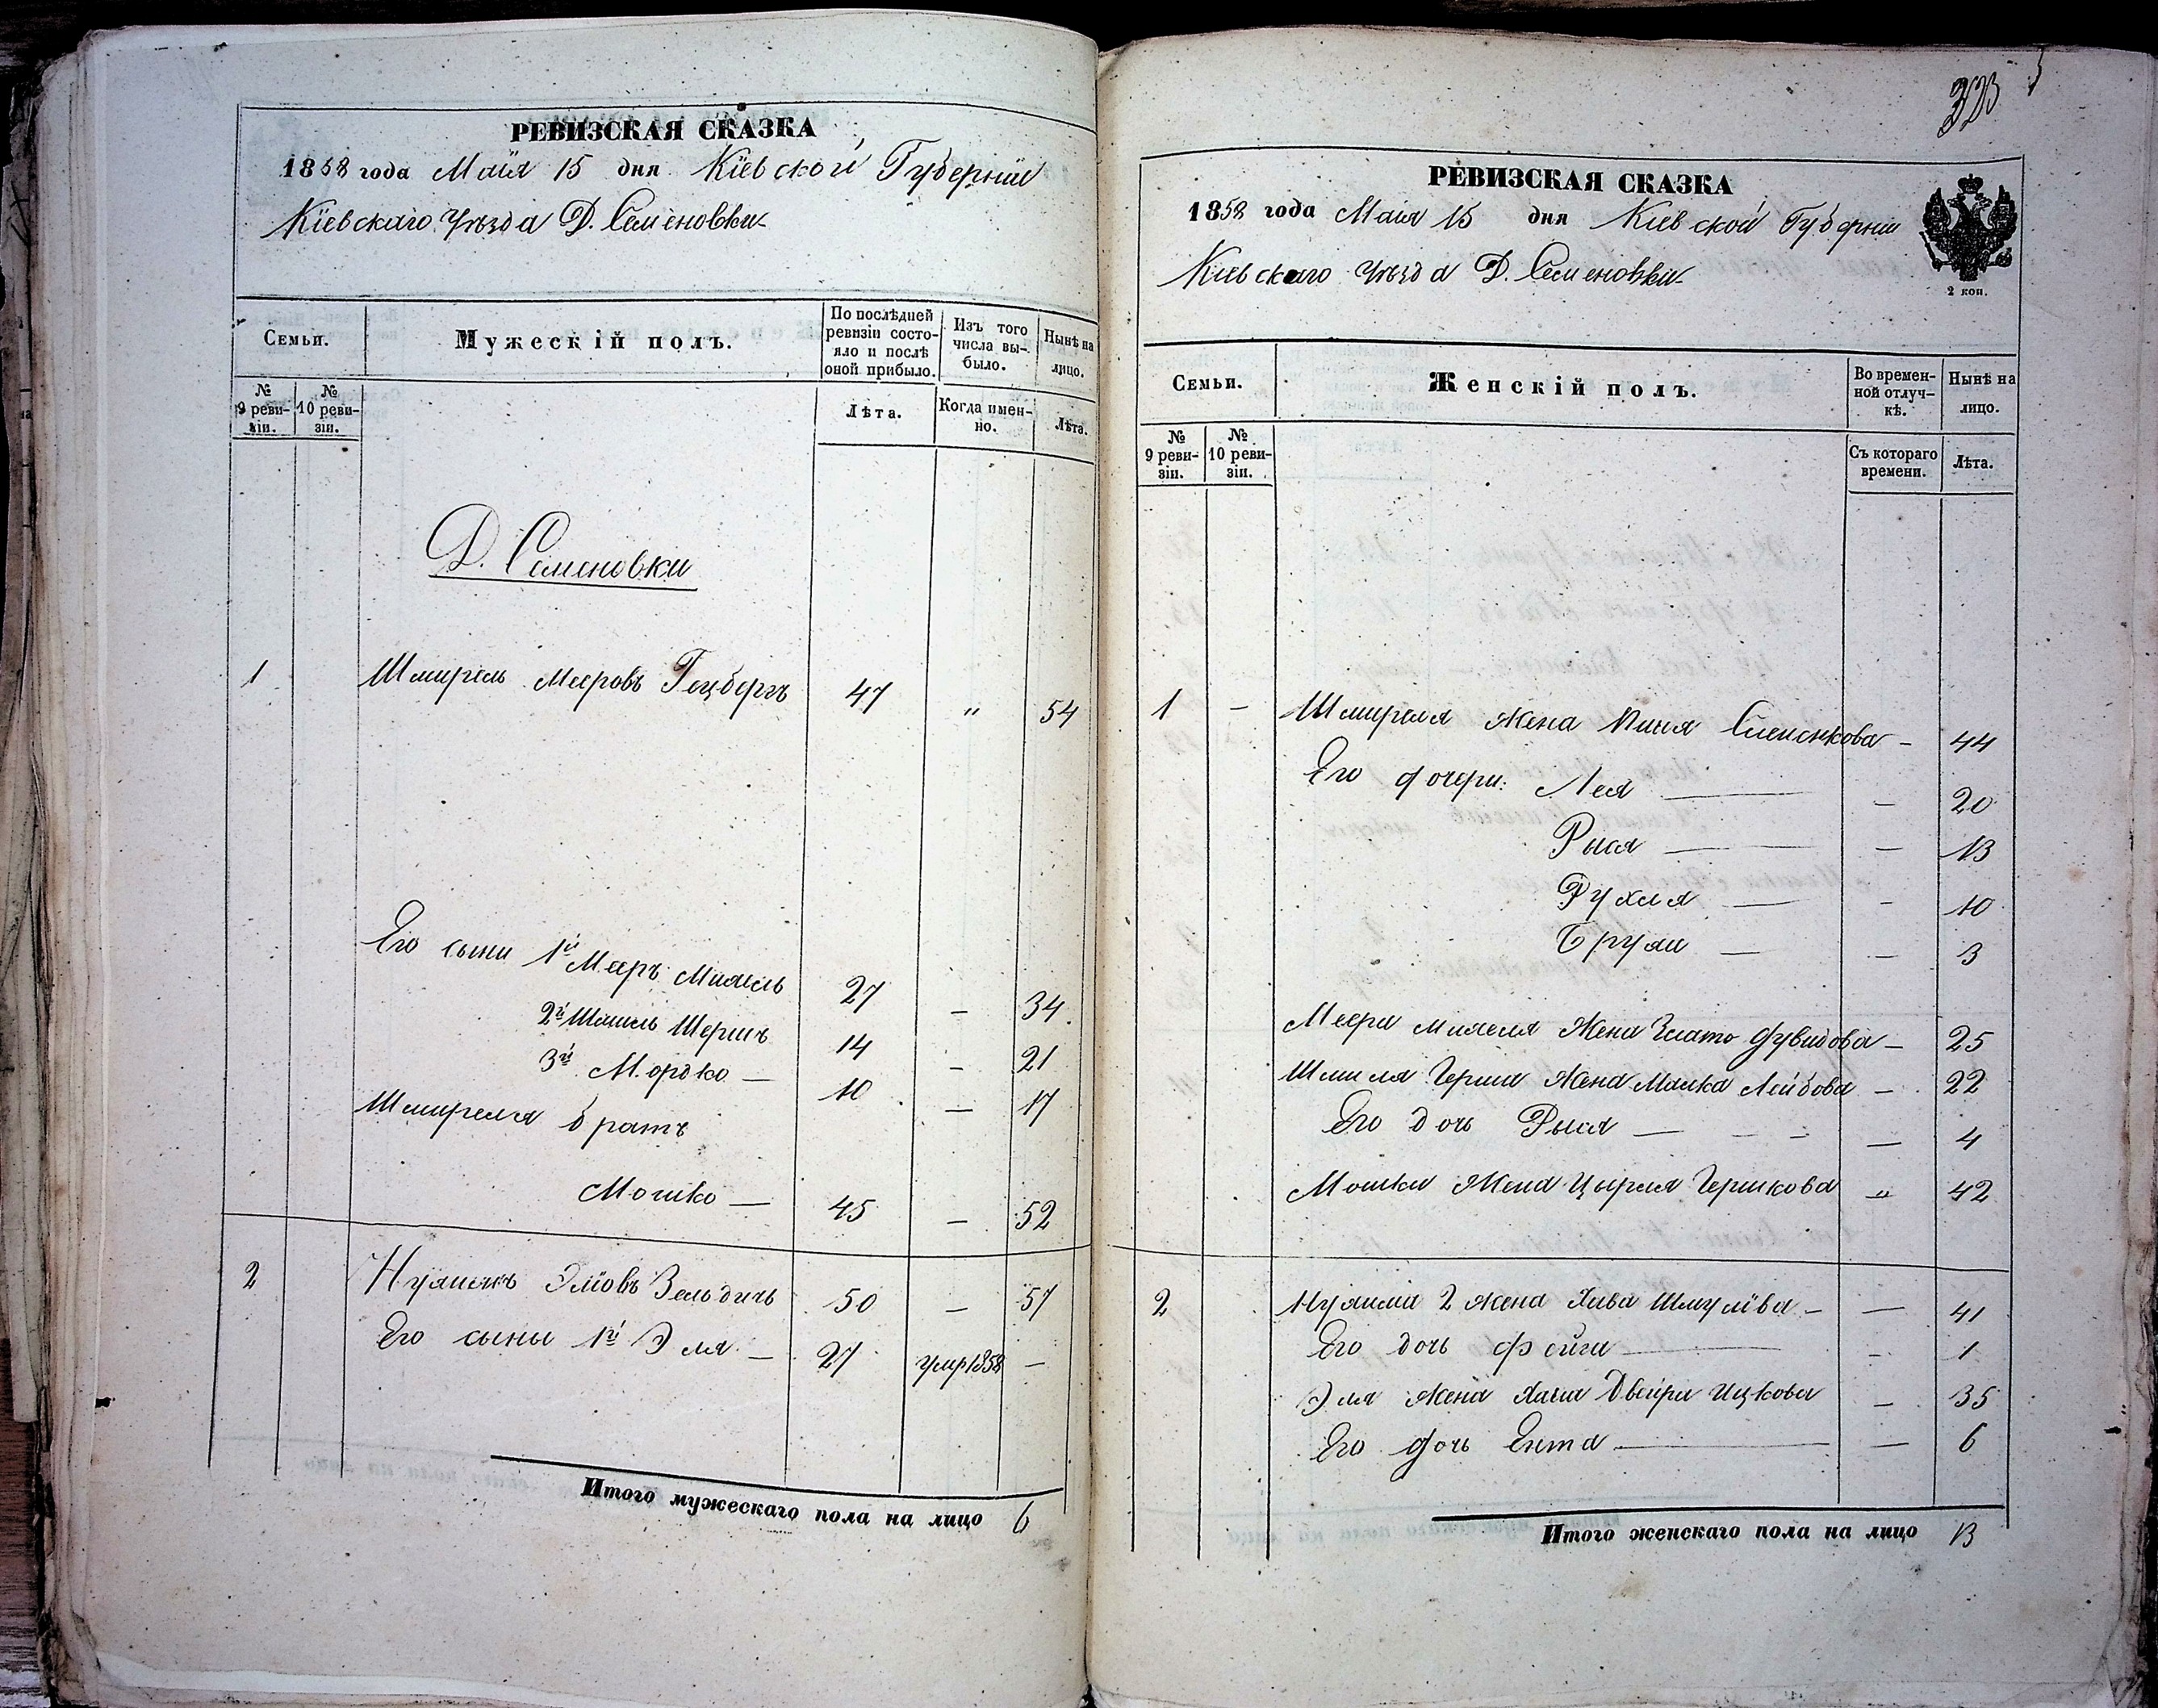 РЕВИЗСКАЯ СКАЗКА
1858 года Маія 15 дня Кіевской Губерніи
Кіевскаго Уѣзда Д. Семеновки
Семьи.
Мужескій полъ.
По послѣдней ревизіи состояло и послѣ оной прибыло.
Изъ того числа выбыло.
Нынѣ на лицо.
№ 9 ревизіи.
№ 10 ревизіи.
Лѣта.
Когда именно.
Лѣта.
Д. Семеновки
1 Шмирель Мееровъ Гецбергъ 47 " 54
Его сыни 1й Мееръ Михель 27 – 34
2й Шмиль Гершъ 14 – 21
3й Мордко — 10 – 17
Шмиреля братъ
Мошко — 45 – 52
2 Нухимъ Эліовъ Зельдичъ 50 – 57
Его сыны 1й Эля – 27 умр 1858 –
Итого мужескаго пола на лицо 6
323
РЕВИЗСКАЯ СКАЗКА
1858 года Маія 15 дня Кіевской Губерніи
Кіевскаго Уѣзда Д. Семеновки
2 коп.
Семьи.
Женскій полъ.
Во временной отлучкѣ.
Нынѣ на лицо.
№ 9 ревизіи.
№ 10 ревизіи.
Съ котораго времени.
Лѣта.
1 – Шмиреля жена – 44
Его дочери: Лея — – 20
Рыся — – 13
Рухля — – 10
3
Меера Михеля жена Злато Дувидова – 25
Шмиля Герша жена Малка Лейбова – 22
Его дочь Рыся — – 4
Мошки жена Цырля Гершкова " 42
2 Нухима 2 жена Хава – — 41
Его дочь Фейга — – 1
Эля жена Хана Двейра Ицкова – 35
Его дочь Ента — – 6
Итого женскаго пола на лицо 13